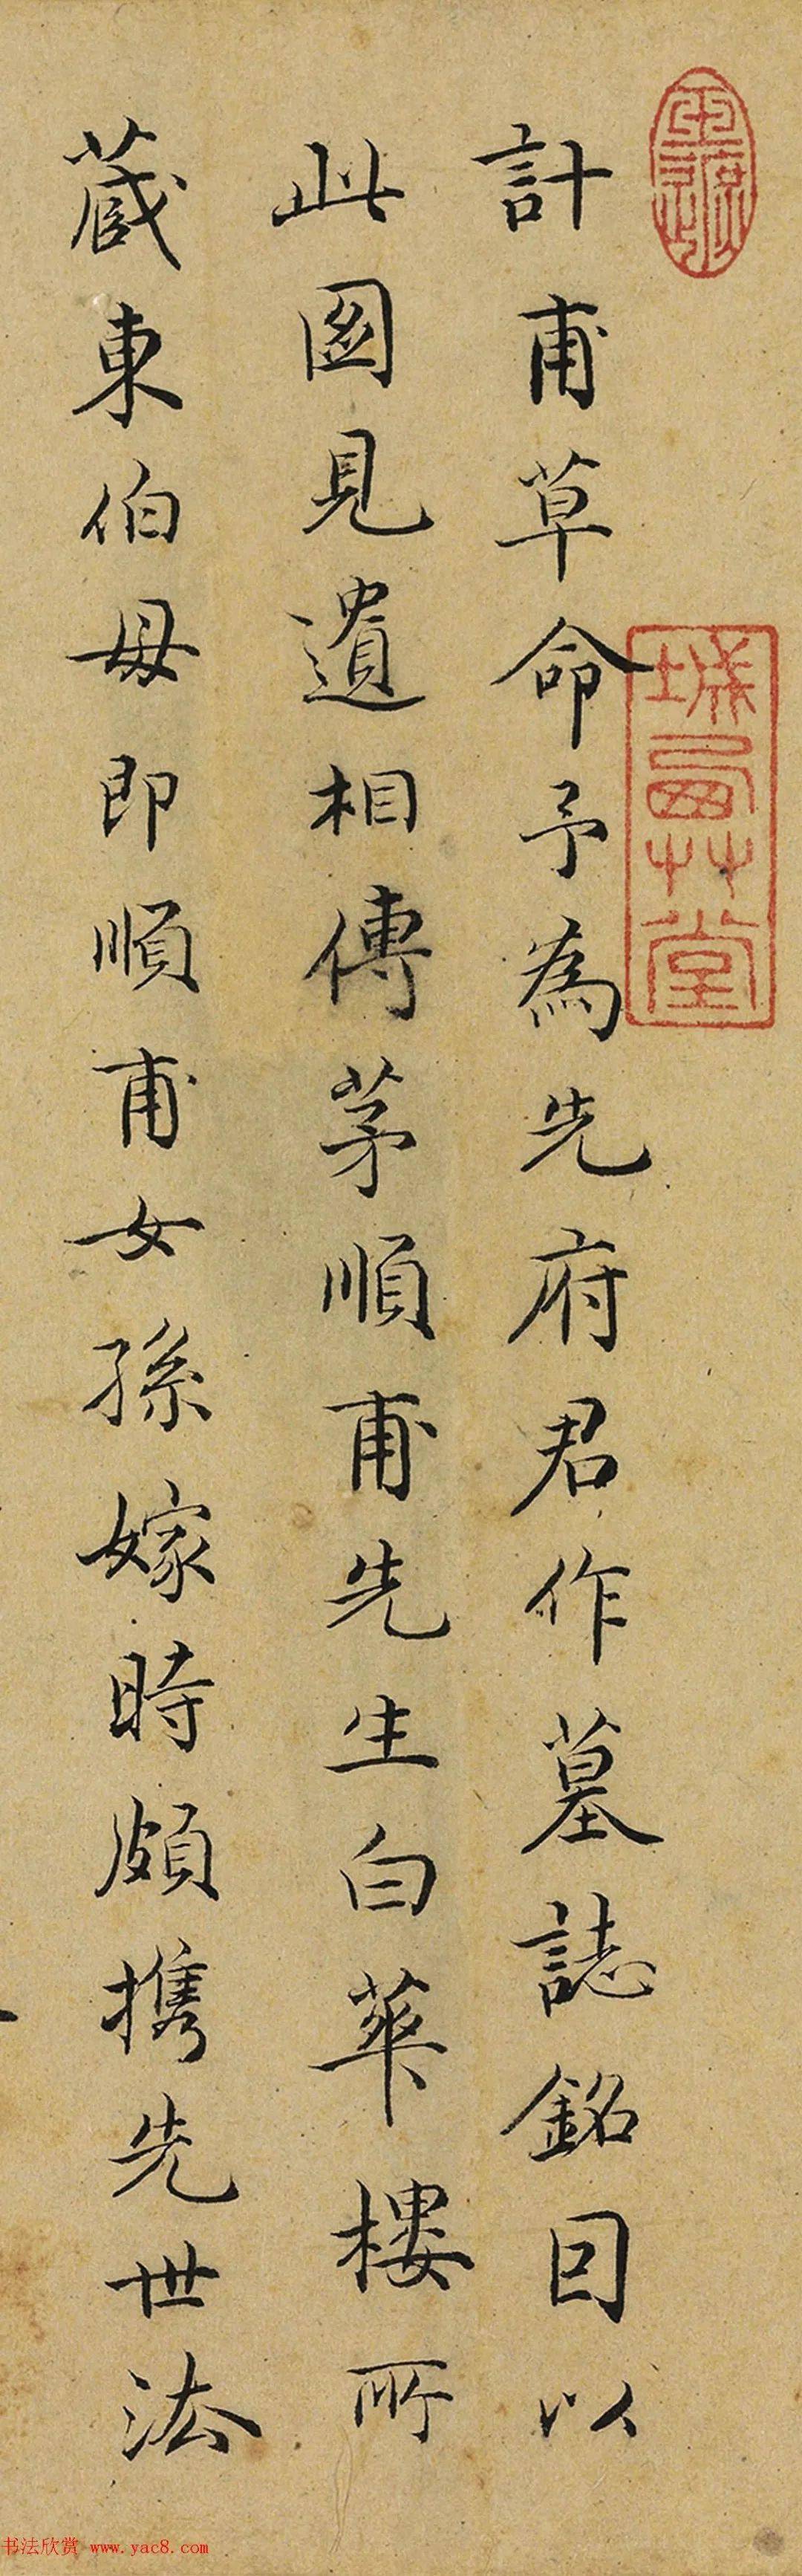 計甫草命予為先府君作墓誌銘囙以
此圖見遺相傳茅順甫先生白華樓所
蔵東伯母即順甫女孫嫁時頗攜先世法
城曷艸堂
书法欣赏 www.yac8.com